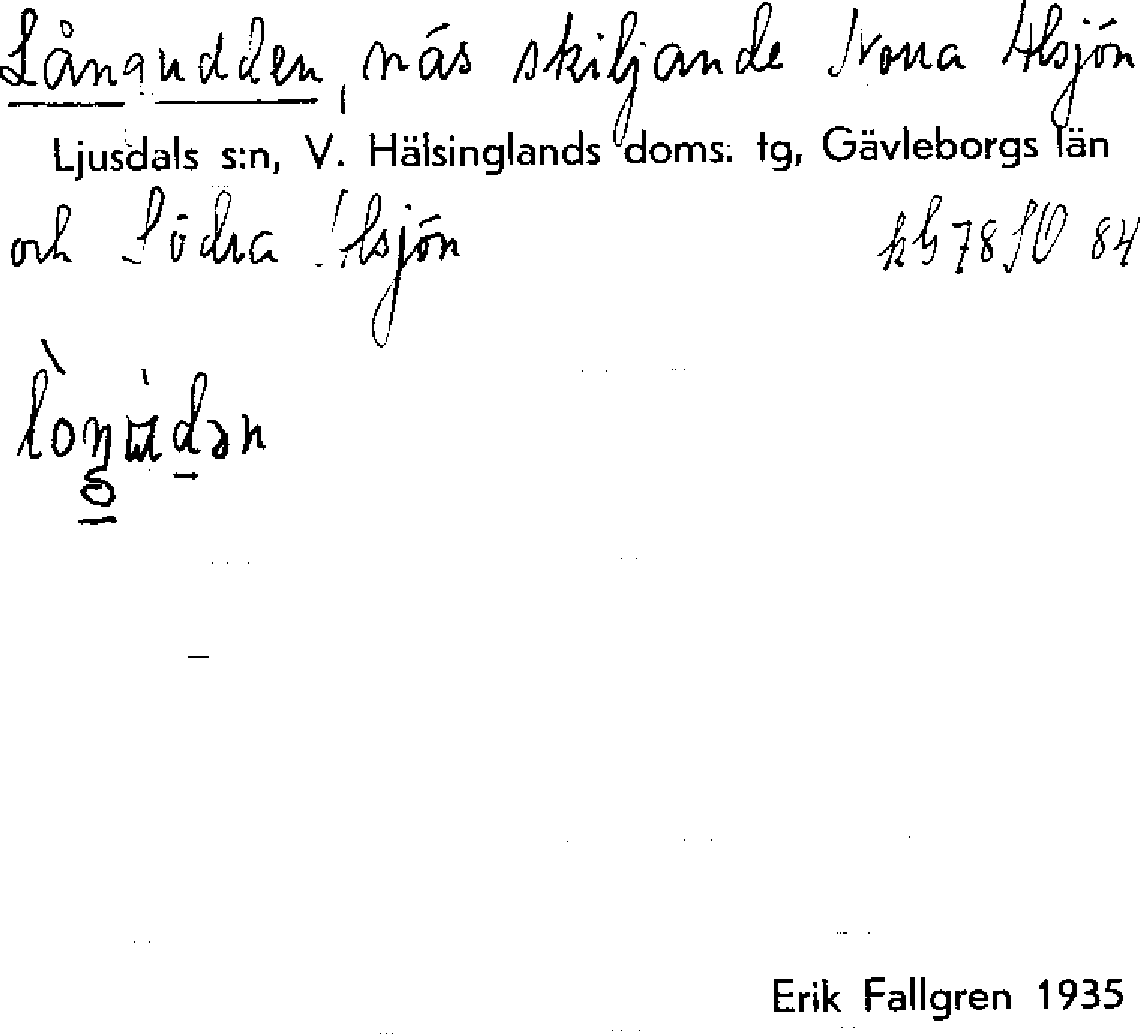 Långudden, näs skiljande Norra Alsjön
Ljusdals s:n, V. Hälsinglands doms. tg, Gävleborgs län
och Södra Alsjön kb 78 SO 84
Erik Fallgren 1935